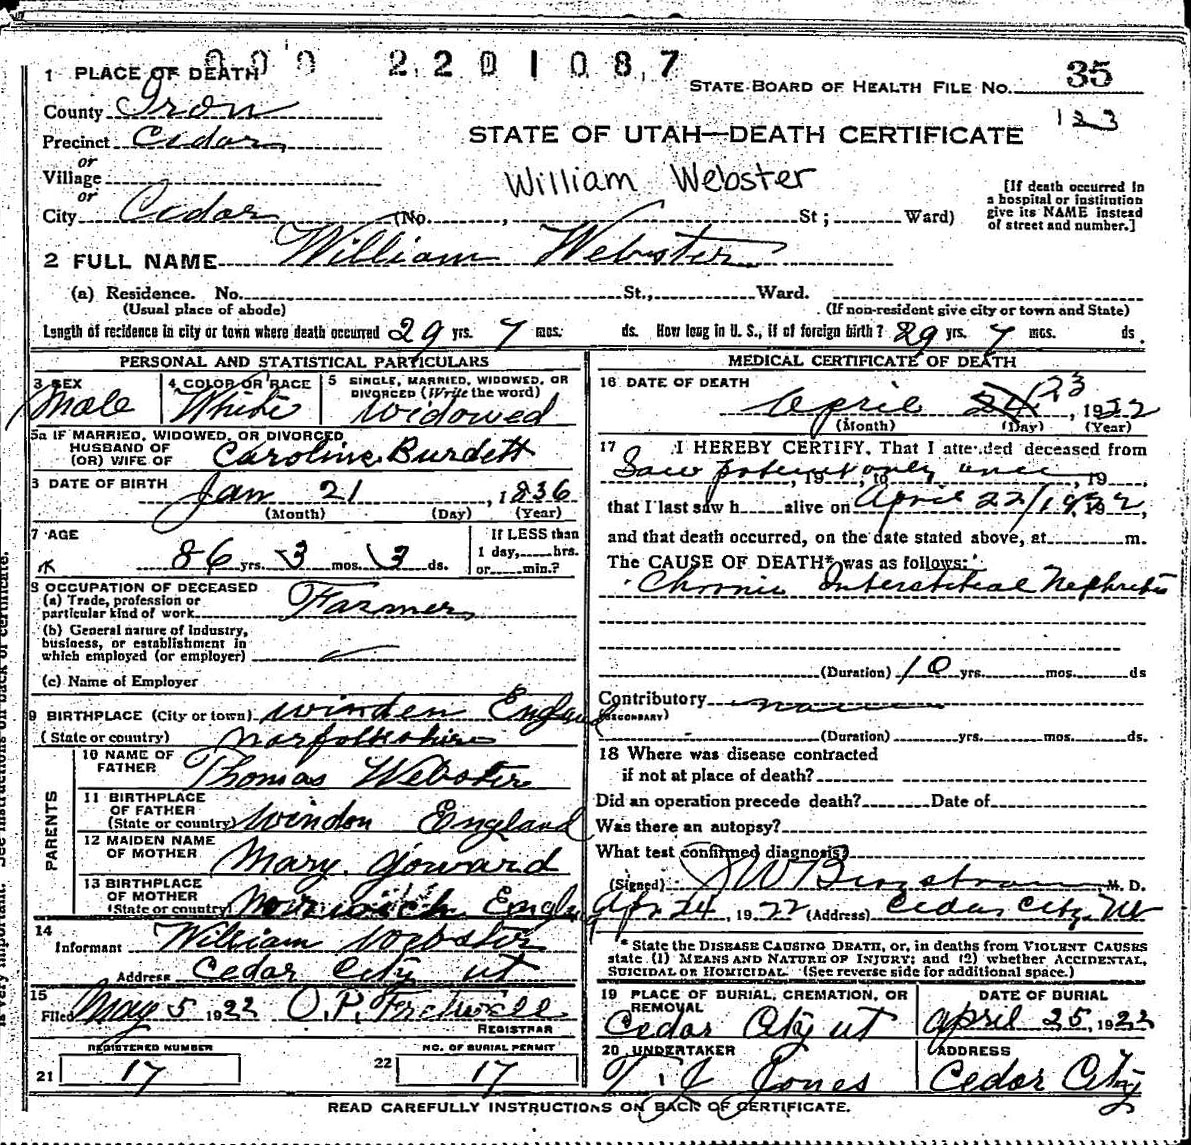 000 2201087
1 PLACE OF DEATH
STATE BOARD OF HEALTH FILE No. 35
County Iron
123
Precinct Cedar
STATE OF UTAH—DEATH CERTIFICATE
or
Village
William Webster
or
City Cedar (No. , St; Ward)
[If death occurred in
a hospital or institution
give its NAME instead
of street and number.]
2 FULL NAME William Webster
(a) Residence. No. St., Ward.
(Usual place of abode) (If non-resident give city or town and State)
Length of residence in city or town where death occurred 29 yrs. 7 mos. ds. How long in U. S., if of foreign birth? 29 yrs. 7 mos. ds.
PERSONAL AND STATISTICAL PARTICULARS
3 SEX
Male
4 COLOR OR RACE
White
5 SINGLE, MARRIED, WIDOWED, OR
DIVORCED (Write the word)
Widowed
5a IF MARRIED, WIDOWED, OR DIVORCED
HUSBAND OF
(OR) WIFE OF Caroline Burdett
DATE OF BIRTH
Jan 21, 1836
(Month) (Day) (Year)
7 AGE
86 yrs. 3 mos. 3 ds.
If LESS than
1 day, hrs.
or min.?
8 OCCUPATION OF DECEASED
(a) Trade, profession or
particular kind of work Farmer
(b) General nature of Industry,
business, or establishment in
which employed (or employer)
(c) Name of Employer
9 BIRTHPLACE (City or town) Winden England
(State or country) Norfolkshire
PARENTS
10 NAME OF
FATHER Thomas Webster
11 BIRTHPLACE
OF FATHER
(State or country) Windon England
12 MAIDEN NAME
OF MOTHER Mary Goward
13 BIRTHPLACE
OF MOTHER
(State or country) Norwich Engla
14
Informant William Webster
Address Cedar City ut
15
Filed May 5 1922 O. P. Fretwell
REGISTRAR
REGISTERED NUMBER
21 17
NO. OF BURIAL PERMIT
22 17
MEDICAL CERTIFICATE OF DEATH
16 DATE OF DEATH
April 24 23, 1922
(Month) (Day) (Year)
17 I HEREBY CERTIFY, That I attended deceased from
Saw patient only once, 19 , to , 19
that I last saw h alive on April 22/1922, 19
and that death occurred, on the date stated above, at m.
The CAUSE OF DEATH* was as follows:
Chronic Interstitial Nephritis
(Duration) 10 yrs. mos. ds
Contributory none
(SECONDARY)
(Duration) yrs. mos. ds.
18 Where was disease contracted
if not at place of death?
Did an operation precede death? Date of
Was there an autopsy?
What test confirmed diagnosis?
(Signed) , M. D.
Apr 24, 1922 (Address) Cedar City, Ut
* State the DISEASE CAUSING DEATH, or, in deaths from VIOLENT CAUSES
state (1) MEANS AND NATURE OF INJURY; and (2) whether ACCIDENTAL,
SUICIDAL OR HOMICIDAL. (See reverse side for additional space.)
19 PLACE OF BURIAL, CREMATION, OR
REMOVAL
Cedar City ut
DATE OF BURIAL
April 25, 1922
20 UNDERTAKER
T. J. Jones
ADDRESS
Cedar City
READ CAREFULLY INSTRUCTIONS ON BACK OF CERTIFICATE.
is very important. See instructions on back of certificate.